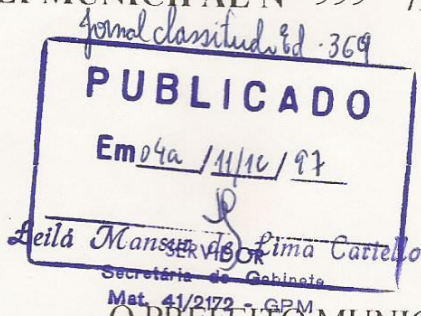 MUNICIPAL Nº 999
Jornal classitudo Ed. 369
PUBLICADO
Em 04a /11/10/ 97
SERVIDOR
Leilá Mansur de Lima Cartello
Secretária de Gabinete
Mat. 41/2172 - GPM
O PREFEITO MUNIC